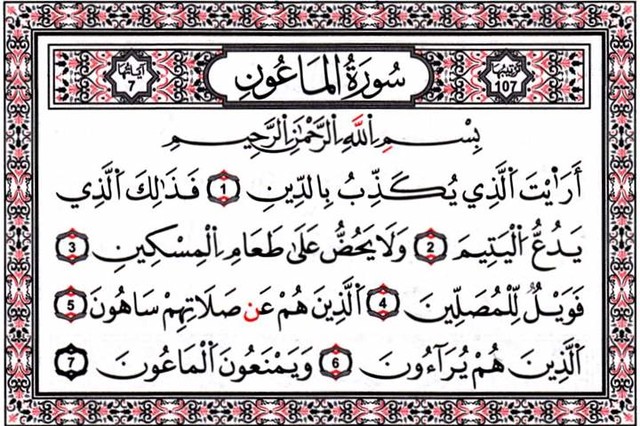 آياتها 7
سُورَةُ الْمَاعُونِ
ترتيبها 107
بِسْمِ اِ۬للَّهِ اِ۬لرَّحْمَٰنِ اِ۬لرَّحِيمِ
أَرَاٰيْتَ اَ۬لَّذِي يُكَذِّبُ بِالدِّينِ 1 فَذَٰلِكَ اَ۬لَّذِي
يَدُعُّ اُ۬لْيَتِيمَ 2 وَلَا يَحُضُّ عَلَىٰ طَعَامِ اِ۬لْمِسْكِينِ 3
فَوَيْلٌ لِّلْمُصَلِّينَ 4 اَ۬لَّذِينَ هُمْ عَن صَلَاتِهِمْ سَاهُونَ 5
اَ۬لَّذِينَ هُمْ يُرَآءُونَ 6 وَيَمْنَعُونَ اَ۬لْمَاعُونَ 7